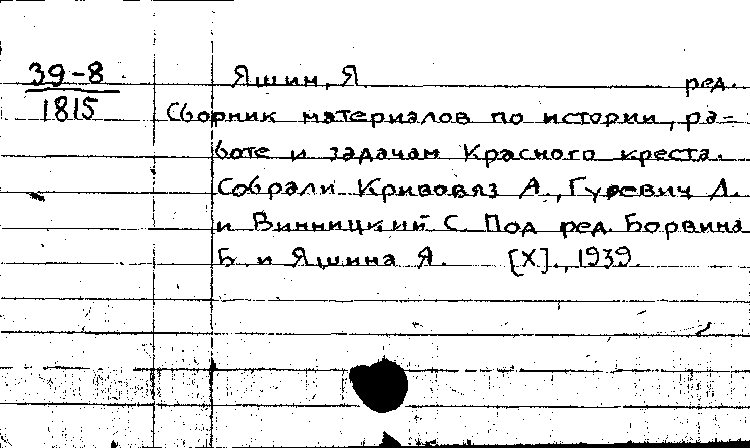 39-8
1815
Яшин, Я. ред.
Сборник материалов по истории, ра-
боте и задачам Красного креста.
Собрали Кривовяз А., Гуревич Л.
и Винницкий С. Под ред. Борвина
Б. и Яшина Я. [Х]., 1939.